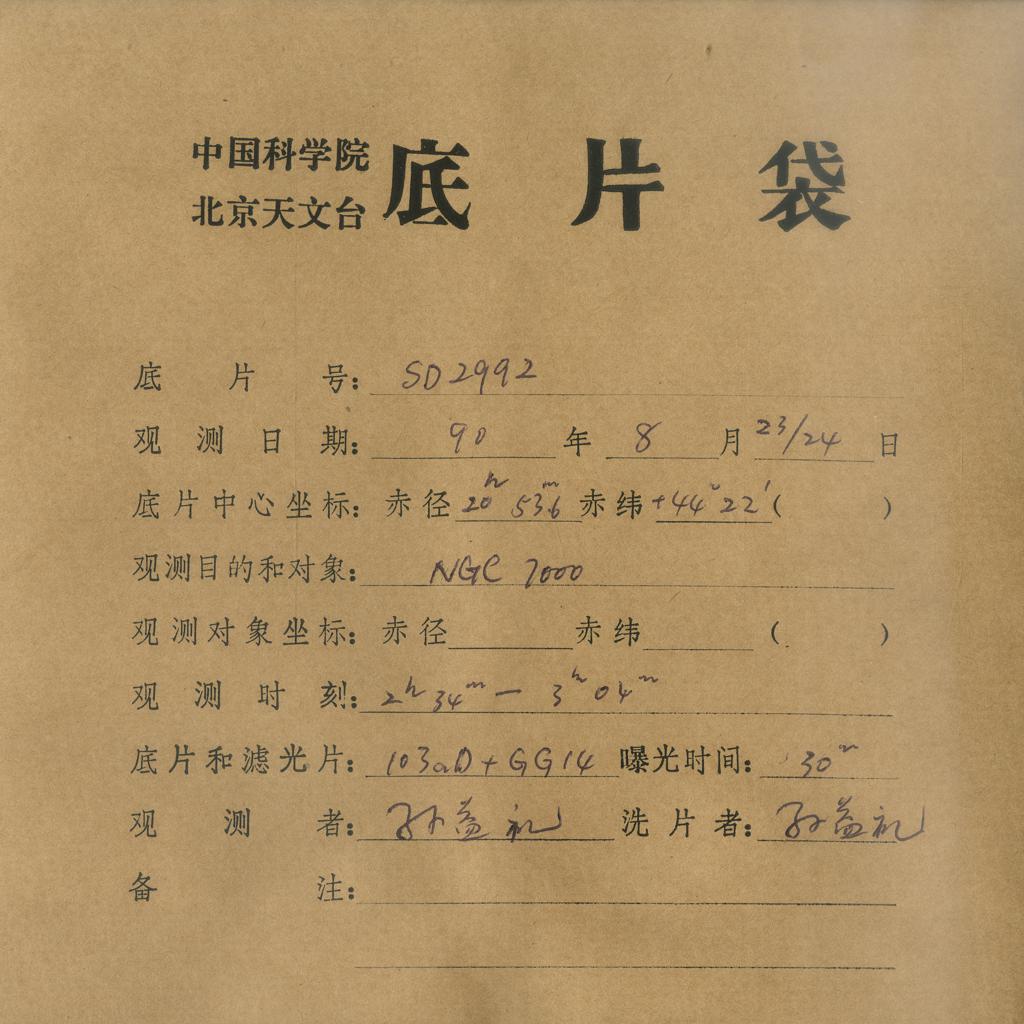 中国科学院
北京天文台
底片袋
底片号: SD2992
观测日期: 90年 8月 23/24日
底片中心坐标: 赤径 20ʰ 53ᵐ.6 赤纬 +44°22′( )
观测目的和对象: NGC 7000
观测对象坐标: 赤径 赤纬 ( )
观测时刻: 2ʰ34ᵐ — 3ʰ04ᵐ
底片和滤光片: 103aD+GG14 曝光时间: 30ᵐ
观测者: 孙益礼 洗片者: 孙益礼
备注: